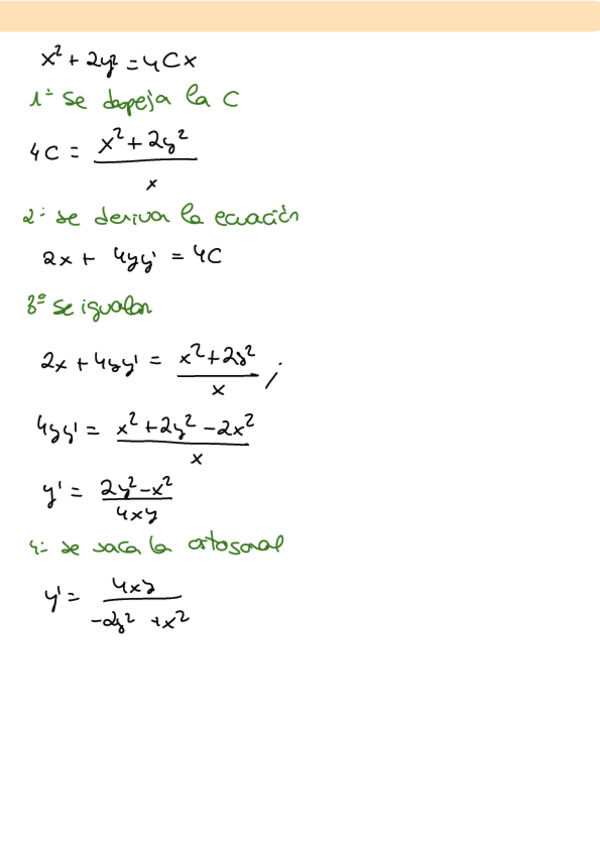 x² + 2y² = 4Cx
1º se despeja la C
4C = (x² + 2y²)/x
2º se deriva la ecuación
2x + 4yy' = 4C
3º se igualan
2x + 4yy' = (x² + 2y²)/x ;
4yy' = (x² + 2y² - 2x²)/x
y' = (2y² - x²)/4xy
4º se saca la ortogonal
y' = 4xy/(-2y² + x²)